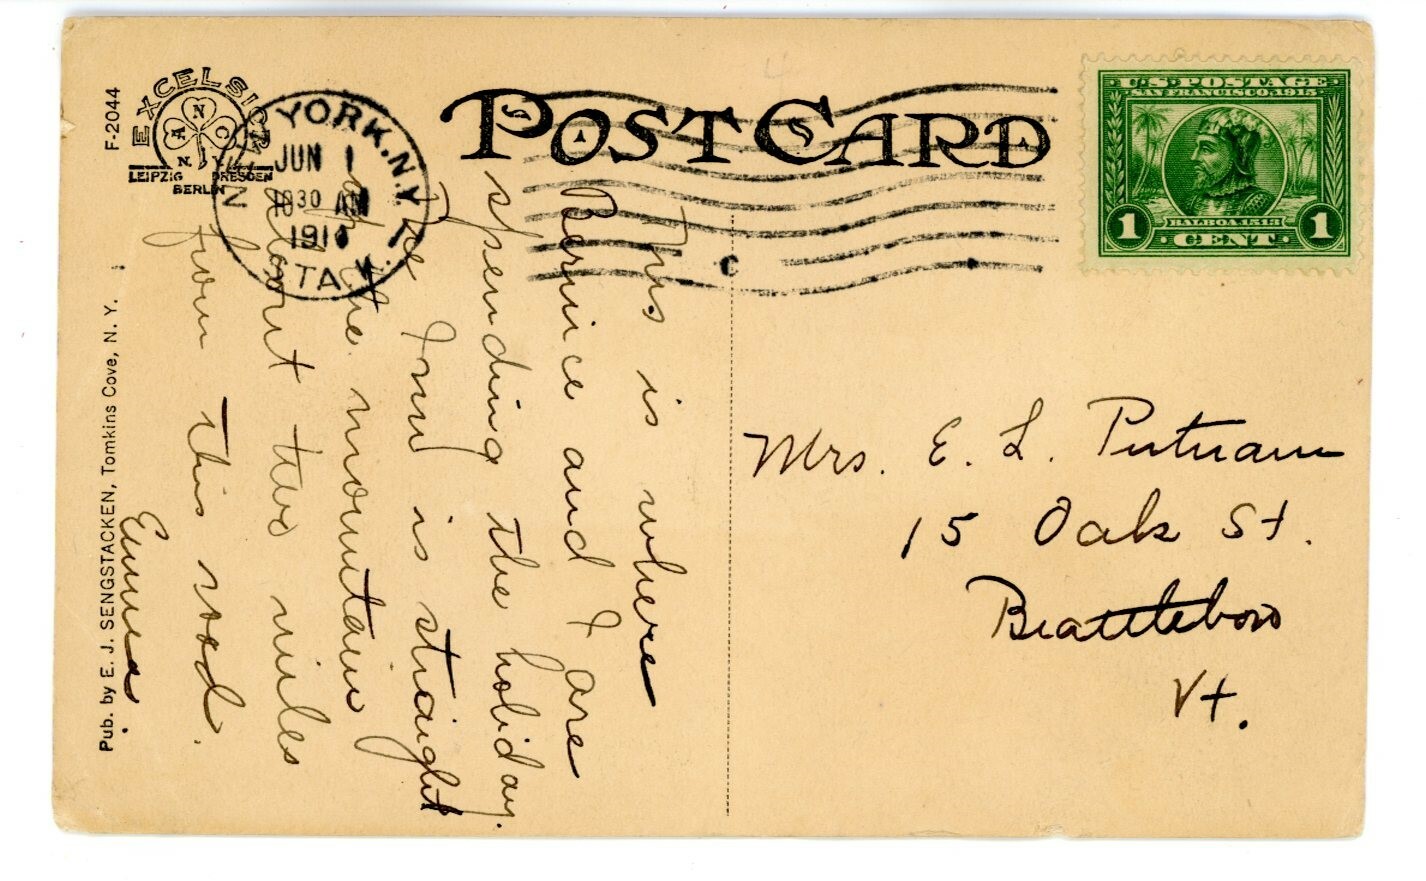 F-2044
EXCELSIOR
A N C
N. Y.
LEIPZIG DRESDEN
BERLIN
NEW YORK, N.Y.
JUN 1
1030 AM
191
STA.
POST CARD
C
U·S·POSTAGE
SAN FRANCISCO 1915
BALBOA 1513
1 CENT 1
This is where
Bernice and I are
spending the holiday.
The Inn is straight
up the mountain
about two miles
from this road.
Pub. by E. J. SENGSTACKEN, Tomkins Cove, N. Y.
Mrs. E. L. Putnam
15 Oak St.
Brattleboro
Vt.